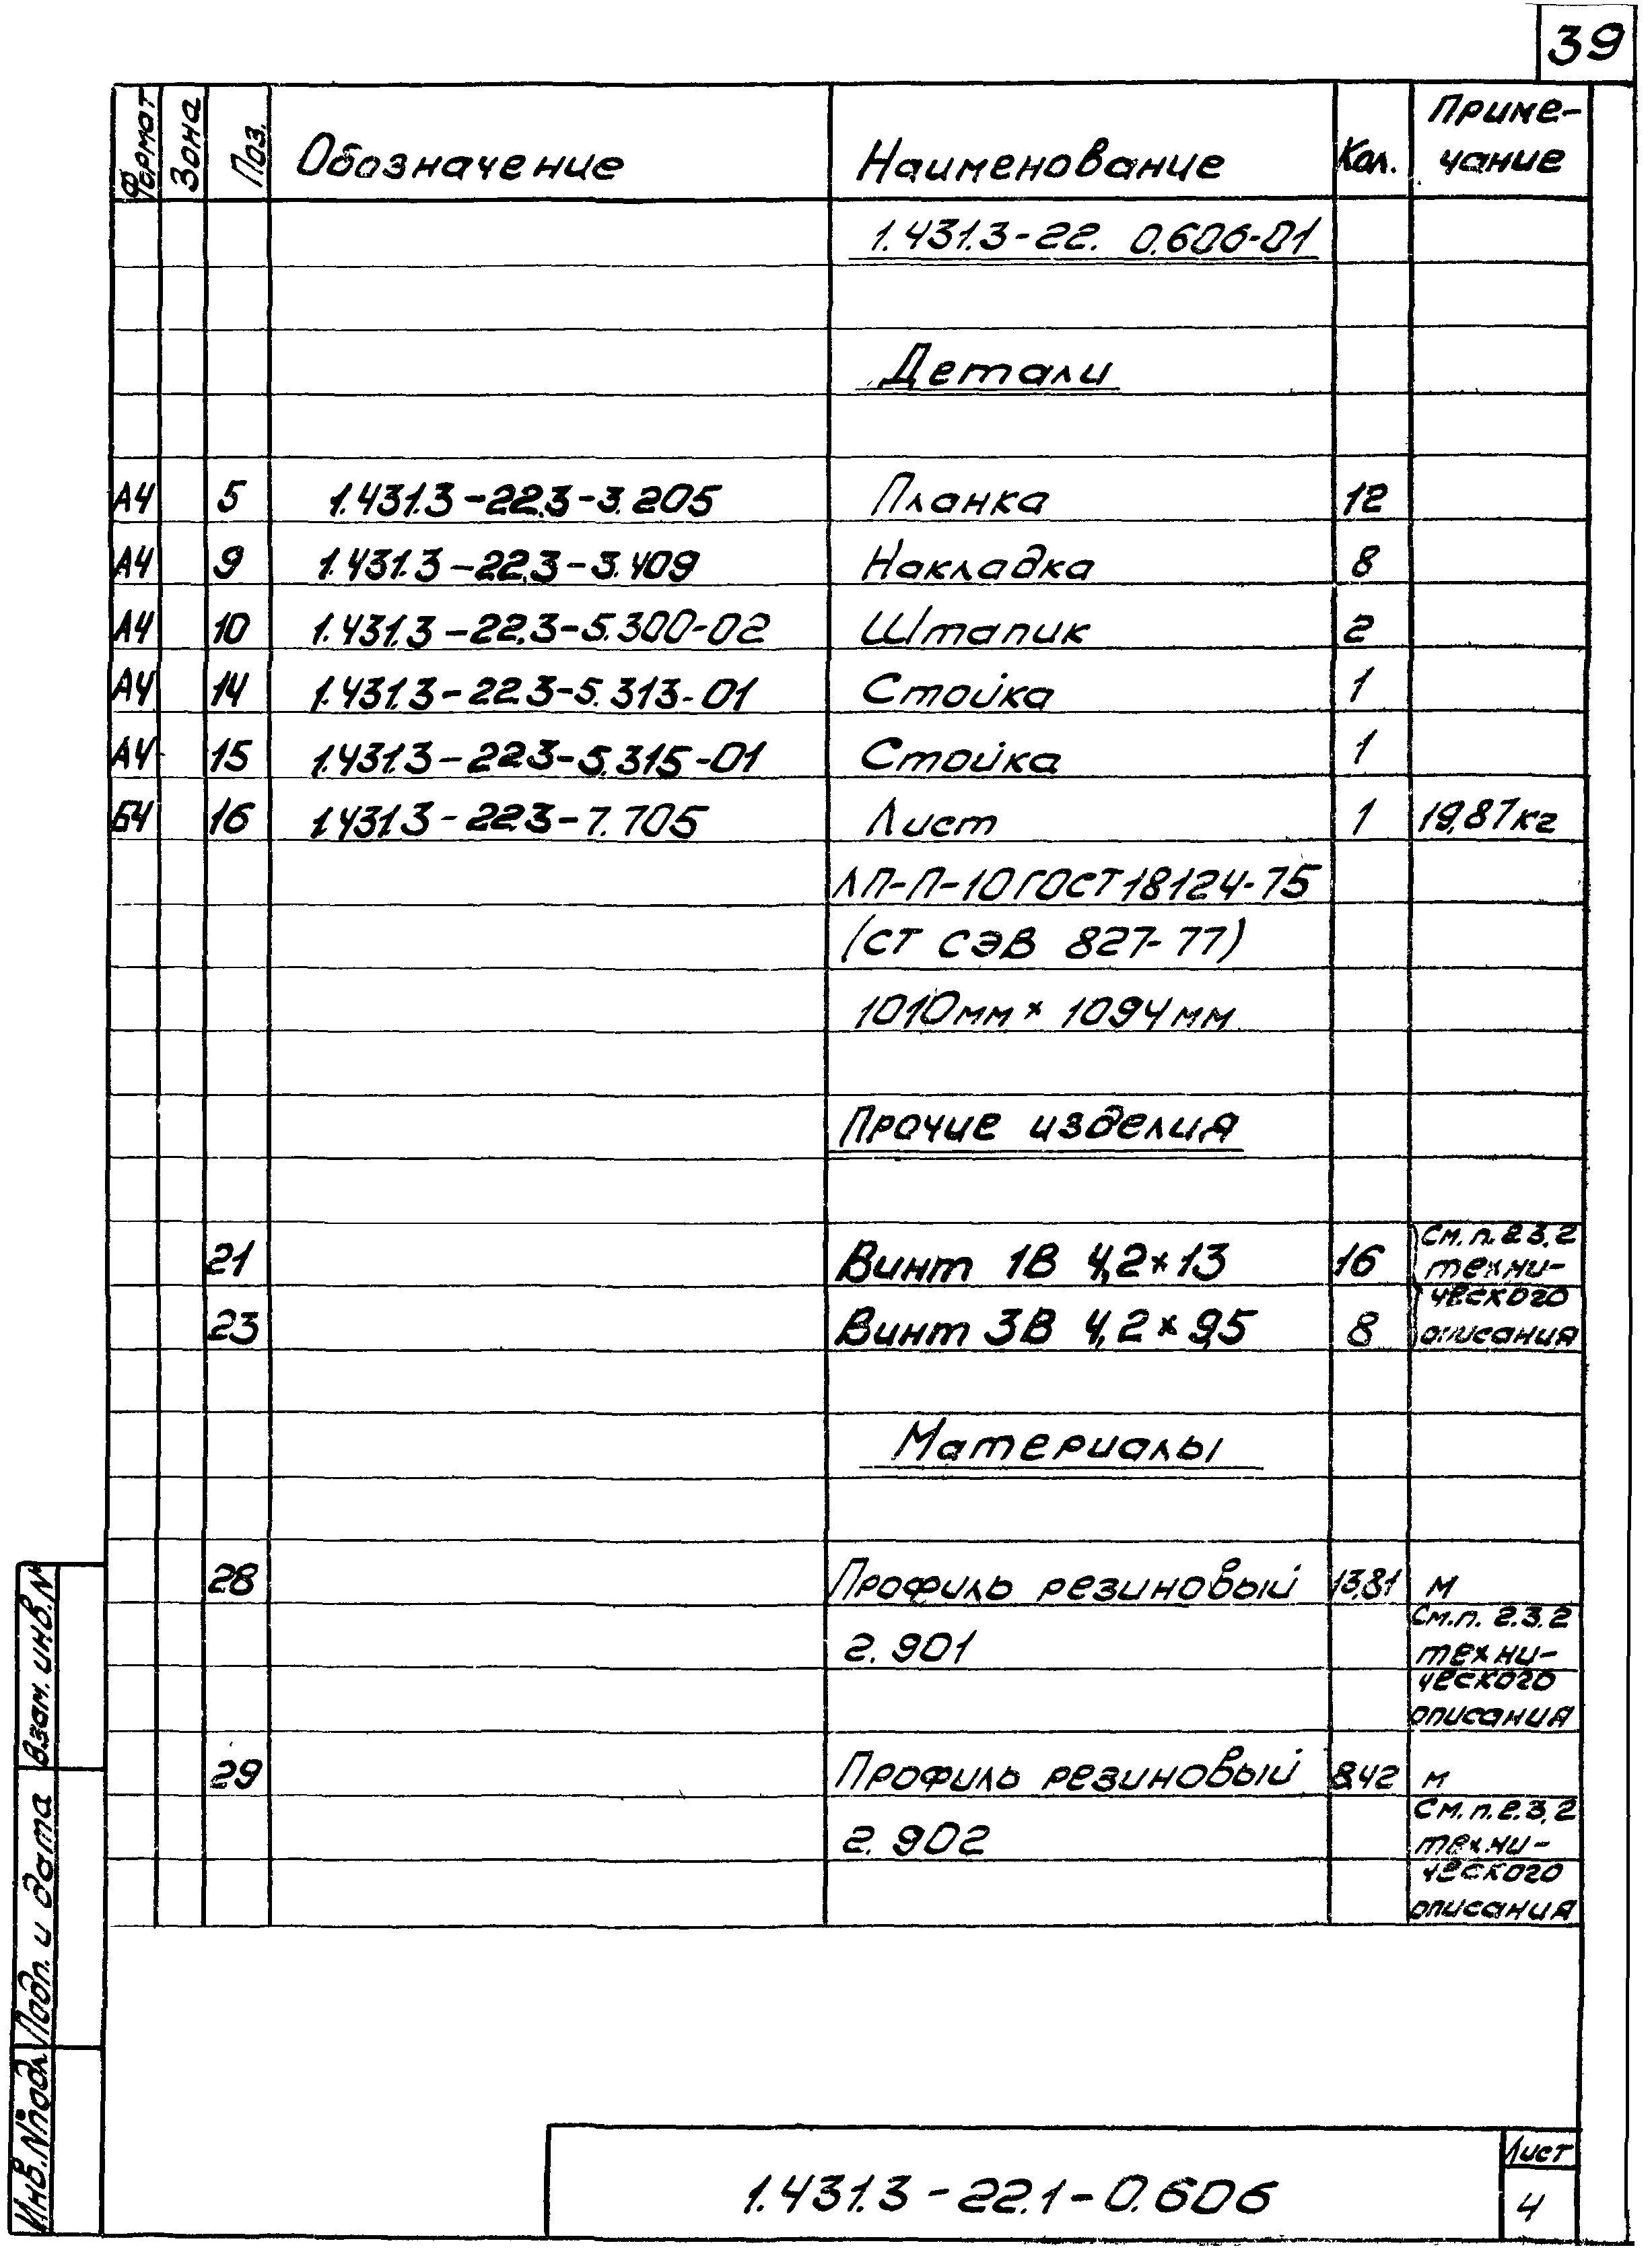 39
Формат Зона Поз. Обозначение Наименование Кол. Приме-
чание
1.431.3-22. 0.606-01
Детали
А4 5 1.431.3-22.3-3.205 Планка 12
А4 9 1.431.3-22.3-3.409 Накладка 8
А4 10 1.431.3-22.3-5.300-02 Штапик 2
А4 14 1.431.3-22.3-5.313-01 Стойка 1
А4 15 1.431.3-22.3-5.315-01 Стойка 1
Б4 16 1.431.3-22.3-7.705 Лист 1 19,87кг
ЛП-П-10 ГОСТ 18124-75
(СТ СЭВ 827-77)
1010мм × 1094мм
Прочие изделия
21 Винт 1В 4,2×13 16 См. п. 2.3.2
техни-
ческого
23 Винт 3В 4,2×9,5 8 описания
Материалы
28 Профиль резиновый 13,81 м
г. 901 См. п. 2.3.2
техни-
ческого
описания
29 Профиль резиновый 8,42 м
г. 902 См. п. 2.3.2
техни-
ческого
описания
Взам. инв. N
Подп. и дата
Инв. N подл.
1.431.3-22.1-0.606
Лист
4